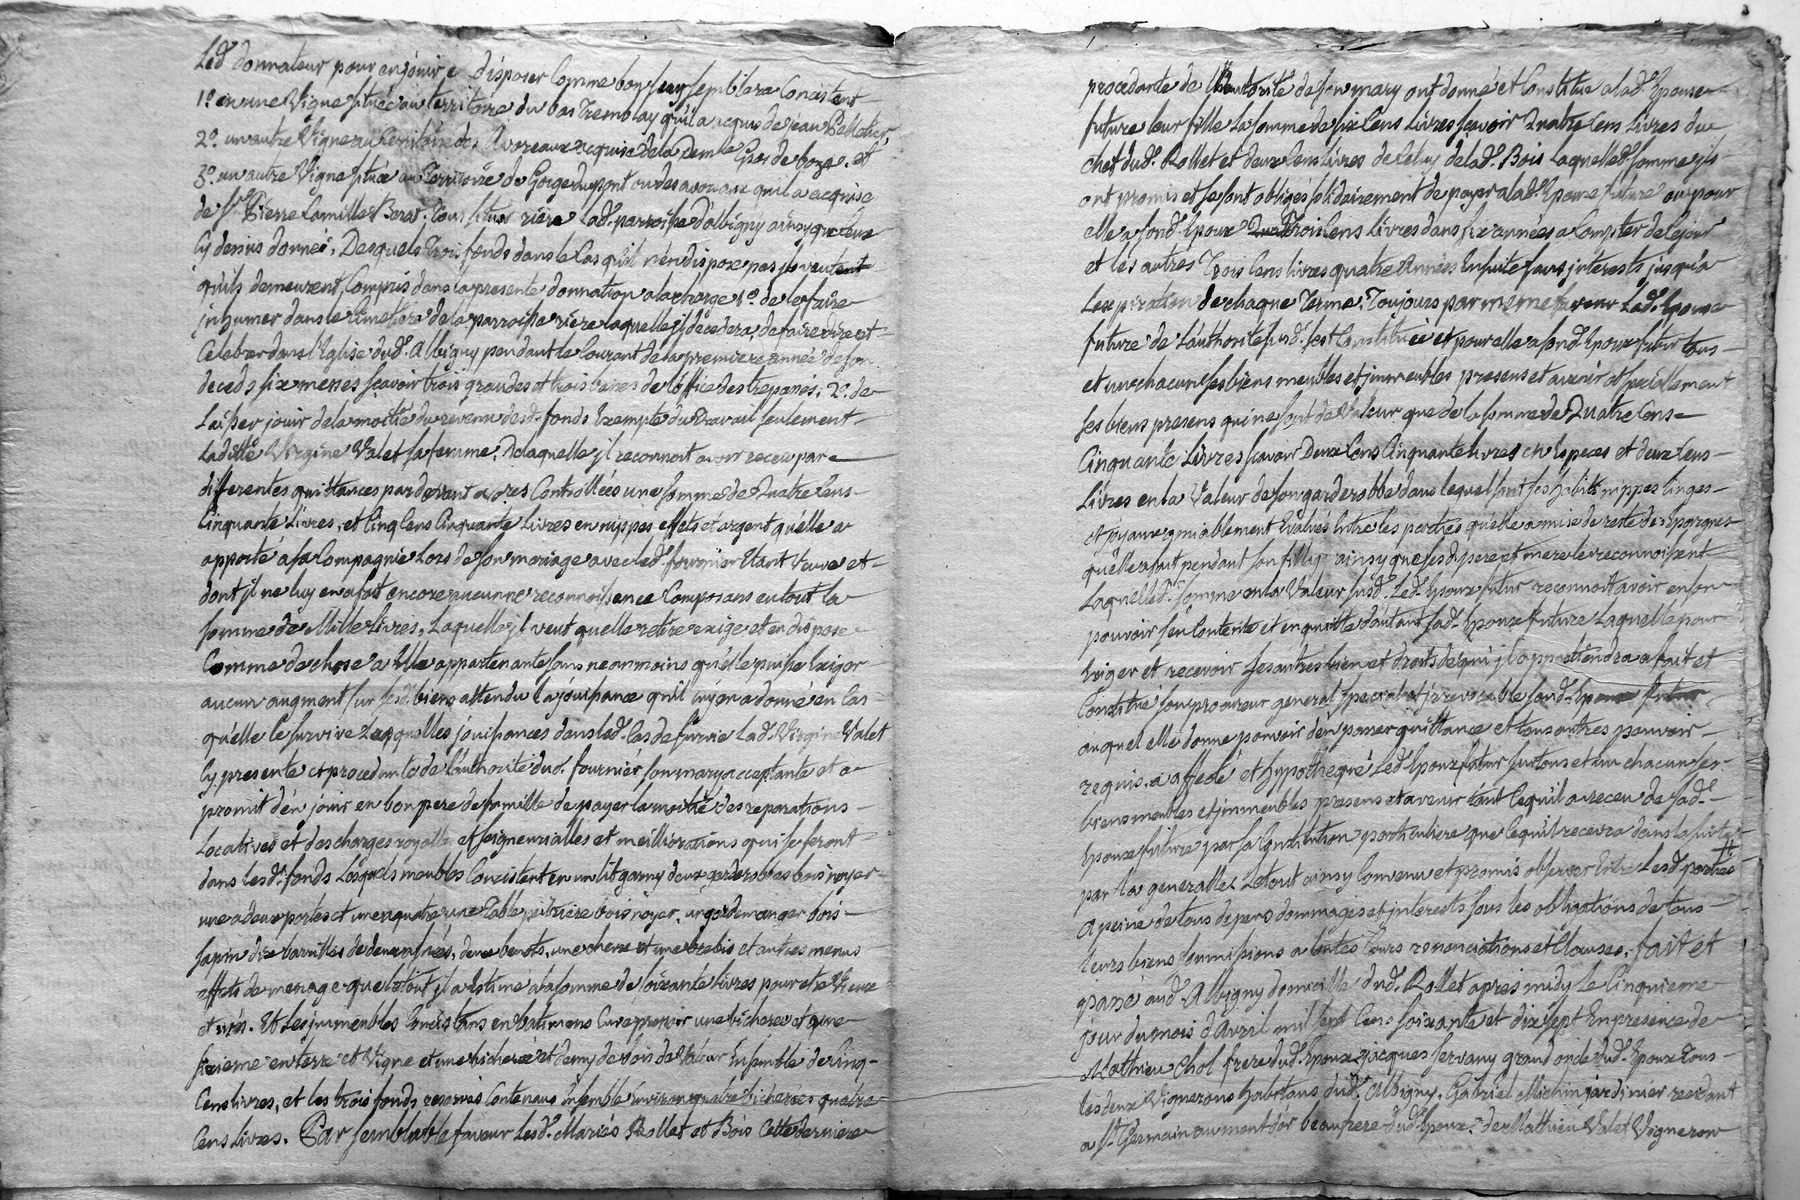 Led. donnateur pour en jouir et disposer comme bon luy semblera Consistent
1°. en une Vigne située au territoire du bas Tremblay qu'il a acquis de jean Pelletier,
2°. un autre Vigne au territoire des Avoreaux acquise de la Demlle Gros de boza. et
3°. un autre Vigne située au Territoire de Gorge du pont ou des avoraux qu'il a acquise
de Sr. Pierre Camille Berat. Tous situés rière lad. parroisse d'albigny ainsy que ceux
cy dessus donnés, Desquels trois fonds dans le Cas qu'il n'en dispose pas il veut
qu'ils demeurent Compris dans la presente donnation a la charge 1°. de le faire
inhumer dans le Cimetière de la parroisse rière laquelle il decedera, de faire dire et
Celebrer dans l'Eglise dud. Albigny pendant le Courant de la premiere année de son
deceds six messes sçavoir trois grandes et trois basses de l'office des trepassés, 2°. de
Laisser jouir de la moitié du revenu desd. fonds Exempte du Travail seulement
Laditte Virgine Valet sa femme, De laquelle il reconnoit avoir receu par
differentes quittances pardevant Nores Controllées une somme de Quatre Cens
Cinquante Livres, et Cinq Cens Cinquante Livres en nippes effets et argent qu'elle a
apporté a sa Compagnie Lors de son mariage avec led. fournier Etant Veuve et
dont il ne luy en a fait encore aucunne reconnoissence Composans en tout la
somme de Mille Livres, Laquelle il veut quelle retire exige et en dispose
Comme de chose a Elle appartenante sans neanmoins qu'elle puisse Exiger
aucun augment sur sesd. biens attendu la jouissance qu'il luy en a donné en Cas
qu'elle le survive Lesquelles jouissances dans led. Cas de survie Lad. Virgine Valet
Cy presente et procedante de l'authorité dud. fournier son mary acceptante et a
promit d'en jouir en bon pere de famille de payer la moitié des reparations
Locatives et des charges royalles et seigneurialles et meilliorations qui se feront
dans lesd. fonds Lesquels meubles Consistent en un lit garny deux garderobbes bois noyer
une a deux portes et une a quatre une Table petrière bois noyer, un gardemanger bois
sapin dix barrilles de deux anées, deux benots, une chevre et une brebis et autres menus
effets de menage que le tout il a Estimé a la somme de soixante livres pour etre Vieux
et usés. Et Les immeubles Consistans en batimens Cuve pressoir une bicherée et quar
tieme en terre et Vigne et une bicherée et demy de bois de Valeur Ensemble de Cinq
Cens livres, et les trois fonds reservés Contenans Ensemble Environ quatre bicherées quatre
Cens livres. Par semblable faveur Lesd. Mariés Rollet et Bois Cette derniere
procedante de l'authorité de son mary ont donné et Constitué a lad. Epouse
future leur fille La somme de six Cens Livres sçavoir Quatre Cens Livres du
chef dud. Rollet et deux Cens livres de Celuy de lad. Bois Laquelled. somme ils
ont promis et se sont obligés solidairement de payer a lad. Epouse future ou pour
elle a sond. Epoux Trois Cens Livres dans six années a Compter de Ce jour
et les autres Trois Cens livres quatre Années Ensuite sans interests jusqu'a
L'expiration de chaque Terme, Toujours par meme faveur Lad. Epouse
future de L'authorité susd. s'est Constituée et pour elle a sond. Epoux futur tous
et un chacun ses biens meubles et immeubles presens et avenir et specialement
ses biens presens qui ne sont de Valeur que de la somme de Quatre Cens
Cinquante Livres sçavoir Deux Cens Cinquante Livres en Especes et deux Cens
Livres en la Valeur de son garderobbe dans lequel sont ses habits nippes linges
et joyaux amiablement Evalués Entre les parties qu'elle a mise de reste de ses Epargnes
qu'elle a fait pendant son filliage ainsy que sesd. pere et mere le reconnoissent
Laquelled. somme en la Valeur susd. Led. Epoux futur reconnoit avoir en son
pouvoir s'en Contente et en quitte d'autant sad. Epouse future Laquelle pour
Exiger et recevoir ses autres bien et droits de qui il appartiendra a fait et
Constitué son procureur general special et irrevocable sond. Epoux futur
auquel elle donne pouvoir d'en passer quittance et tous autres pouvoir
requis, a affecté et hypotheque Led. Epoux futur sur tous et un chacun ses
biens meubles et immeubles presens et avenir tant Ce qu'il a receu de sad.
Epouse future par sa Constitution particuliere que Ce qu'il recevra dans la suitte
par la generalle. Le tout ainsy Convenu et promis observer Entre Lesd. parties
a peine de tous depens dommages et interests sous les obligations de tous
leurs biens soumissions a toutes Cours renonciations et Clauses. fait et
passé aud. Albigny domicille dud. Rollet apres midy le Cinquieme
jour du mois d'avril mil sept Cens soixante et dix sept En presence de
Mathieu Chol frere dud. Epoux jacques Servany grand oncle dud. Epoux Tous
les deux Vignerons habitans dud. Albigny, Gabriel Michin jardinier residant
a St. Germain au mont d'or beaupere dud. Epoux, de Mathieu Valet Vigneron